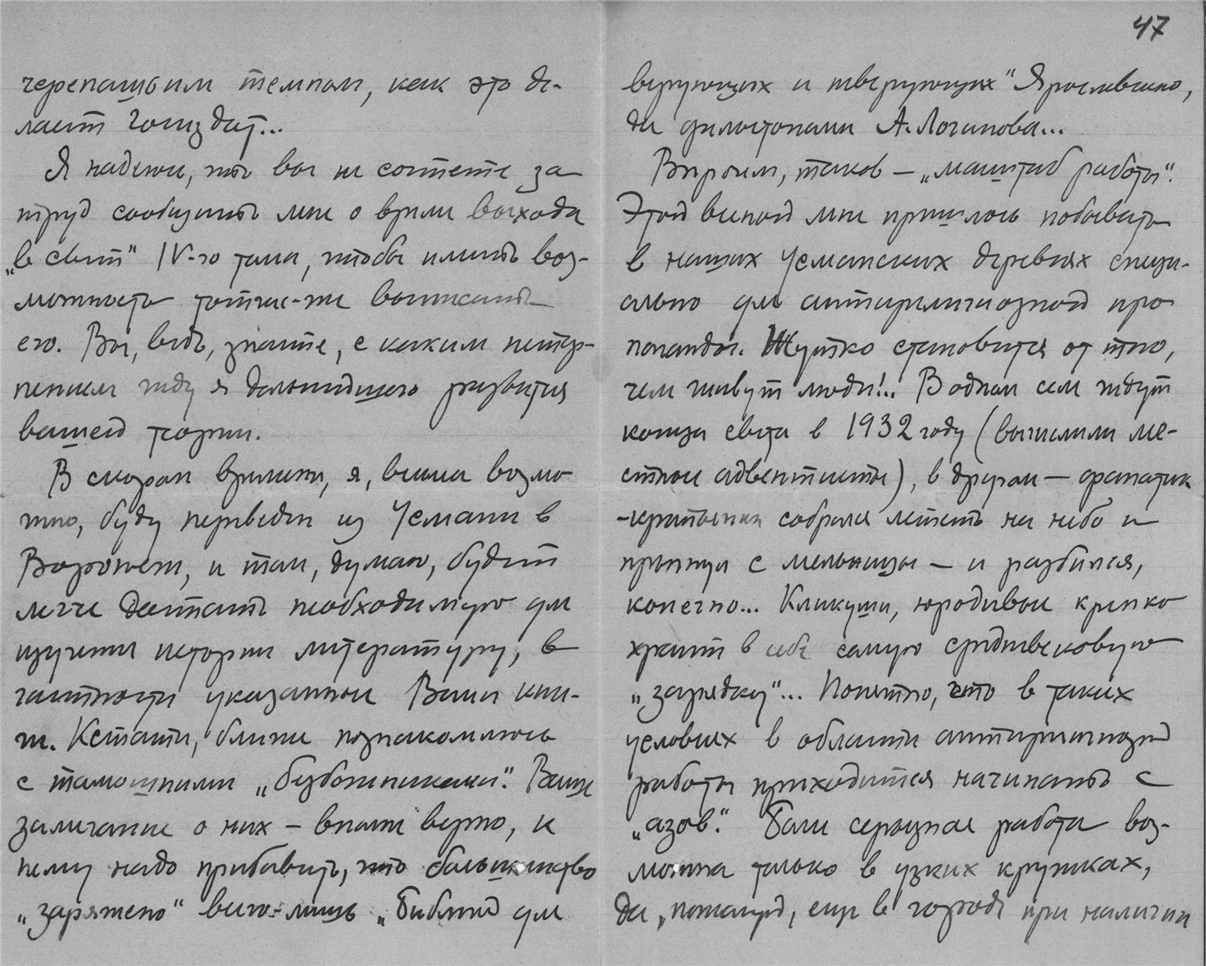 черепашьим темпом, как это де-
лает Госиздат...
Я надеюсь, что вы не сочтете за
труд сообщить мне о времени выхода
„в свет" IV-го тома, чтобы иметь воз-
можность тотчас-же выписать
его. Вы, ведь, знаете, с каким нетер-
пением жду я дальнейшего развития
вашей теории.
В скором времени, я, весьма возмо-
жно, буду переведен из Усмани в
Воронеж, и там, думаю, будет
легче достать необходимую для
изучения истории литературу, в
частности указанной Вами кни-
ги. Кстати, ближе познакомлюсь
с тамошними „безбожниками". Ваше
замечание о них – вполне верно, к
нему надо прибавить, что большинство
„заряжено" всего-лишь „Библией для
47
верующих и неверующих" Ярославского,
да фильстонами А. Логинова...
Впрочем, таков – „масштаб работы".
Этой весной мне пришлось побывать
в наших Усманских деревнях специ-
ально для антирелигиозной про-
паганды. Жутко становится от того,
чем живут люди!.. В одном селе ждут
конца света в 1932 году (вычислили ме-
стные адвентисты), в другом – фанатик
-крестьянин собрался лететь на небо и
прыгнул с мельницы – и разбился,
конечно... Кликуши, юродивые крепко
хранят в себе самую средневековую
„зарядку"... Понятно, что в таких
условиях в области антирелигиозной
работы приходится начинать с
„азов". Более серьезная работа воз-
можна только в узких кружках,
да, пожалуй, еще в городе при наличии